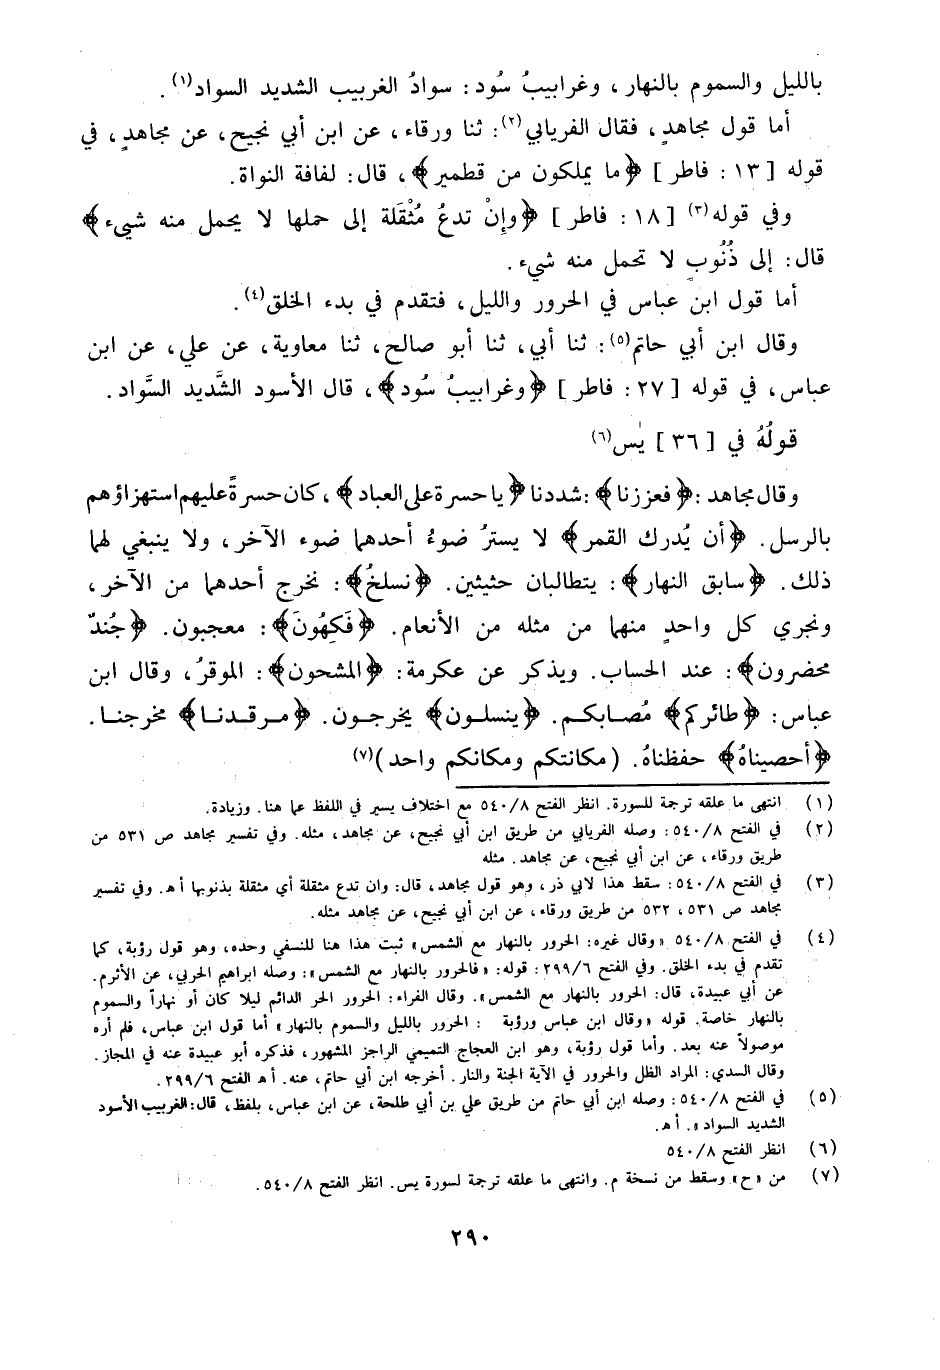 بالليل والسموم بالنهار، وغرابيبُ سُود: سوادُ الغربيب الشديد السواد(١).
أما قول مجاهدٍ، فقال الفريابي(٢): ثنا ورقاء، عن ابن أبي نجيح، عن مجاهدٍ، في
قوله [١٣: فاطر] ﴿ما يملكون من قطمير﴾، قال: لفافة النواة.
وفي قوله(٣) [١٨: فاطر] ﴿وإنْ تدعُ مُثْقَلة إلى حملها لا يحمل منه شيء﴾
قال: إلى ذُنُوبٍ لا تحمل منه شيء.
أما قول ابن عباس في الحرور والليل، فتقدم في بدء الخلق(٤).
وقال ابن أبي حاتم(٥): ثنا أبي، ثنا أبو صالح، ثنا معاوية، عن علي، عن ابن
عباس، في قوله [٢٧: فاطر] ﴿وغرابيبُ سُود﴾، قال الأسود الشَّديد السَّواد.
قولُهُ في [٣٦] يٰس(٦)
وقال مجاهد: ﴿فعززنا﴾: شددنا ﴿يا حسرة على العباد﴾، كان حسرةً عليهم استهزاؤهم
بالرسل. ﴿أن يُدرك القمر﴾ لا يسترُ ضوءُ أحدهما ضوء الآخر، ولا ينبغي لهما
ذلك. ﴿سابق النهار﴾: يتطالبان حثيثين. ﴿نسلخُ﴾: نخرج أحدهما من الآخر،
ونجري كل واحدٍ منهما من مثله من الأنعام. ﴿فَكِهُونَ﴾: معجبون. ﴿جُندٌ
محضرون﴾: عند الحساب. ويذكر عن عكرمة: ﴿المشحون﴾: الموقرُ، وقال ابن
عباس: ﴿طائركم﴾ مُصابكم. ﴿ينسلون﴾ يخرجون. ﴿مرقدنا﴾ مخرجنا.
﴿أحصيناهُ﴾ حفظناهُ. (مكانتكم ومكانكم واحد)(٧)
(١) انتهى ما علقه ترجمة للسورة. انظر الفتح ٥٤٠/٨ مع اختلاف يسير في اللفظ عما هنا. وزيادة.
(٢) في الفتح ٥٤٠/٨: وصله الفريابي من طريق ابن أبي نجيح، عن مجاهد، مثله. وفي تفسير مجاهد ص ٥٣١ من
طريق ورقاء، عن ابن أبي نجيح، عن مجاهد. مثله
(٣) في الفتح ٥٤٠/٨: سقط هذا لابي ذر، وهو قول مجاهد، قال: وان تدع مثقلة أي مثقلة بذنوبها أ هـ. وفي تفسير
مجاهد ص ٥٣١، ٥٣٢ من طريق ورقاء، عن ابن أبي نجيح، عن مجاهد مثله.
(٤) في الفتح ٥٤٠/٨ «وقال غيره: الحرور بالنهار مع الشمس» ثبت هذا هنا للنسفي وحده، وهو قول رؤبة، كما
تقدم في بدء الخلق. وفي الفتح ٢٩٩/٦: قوله: «فالحرور بالنهار مع الشمس»: وصله ابراهيم الحربي، عن الأثرم.
عن أبي عبيدة، قال: الحرور بالنهار مع الشمس». وقال الفراء: الحرور الحر الدائم ليلا كان أو نهاراً والسموم
بالنهار خاصة. قوله «وقال ابن عباس ورؤبة : الحرور بالليل والسموم بالنهار» أما قول ابن عباس، فلم أره
موصولاً عنه بعد. وأما قول رؤبة، وهو ابن العجاج التميمي الراجز المشهور، فذكره أبو عبيدة عنه في المجاز.
وقال السدي: المراد الظل والحرور في الآية الجنة والنار. أخرجه ابن أبي حاتم، عنه. أ هـ الفتح ٢٩٩/٦.
(٥) في الفتح ٥٤٠/٨: وصله ابن أبي حاتم من طريق علي بن أبي طلحة، عن ابن عباس، بلفظ، قال: الغربيب الأسود
الشديد السواد». أ هـ.
(٦) انظر الفتح ٥٤٠/٨
(٧) من «ح» وسقط من نسخة م. وانتهى ما علقه ترجمة لسورة يس. انظر الفتح ٥٤٠/٨.
٢٩٠